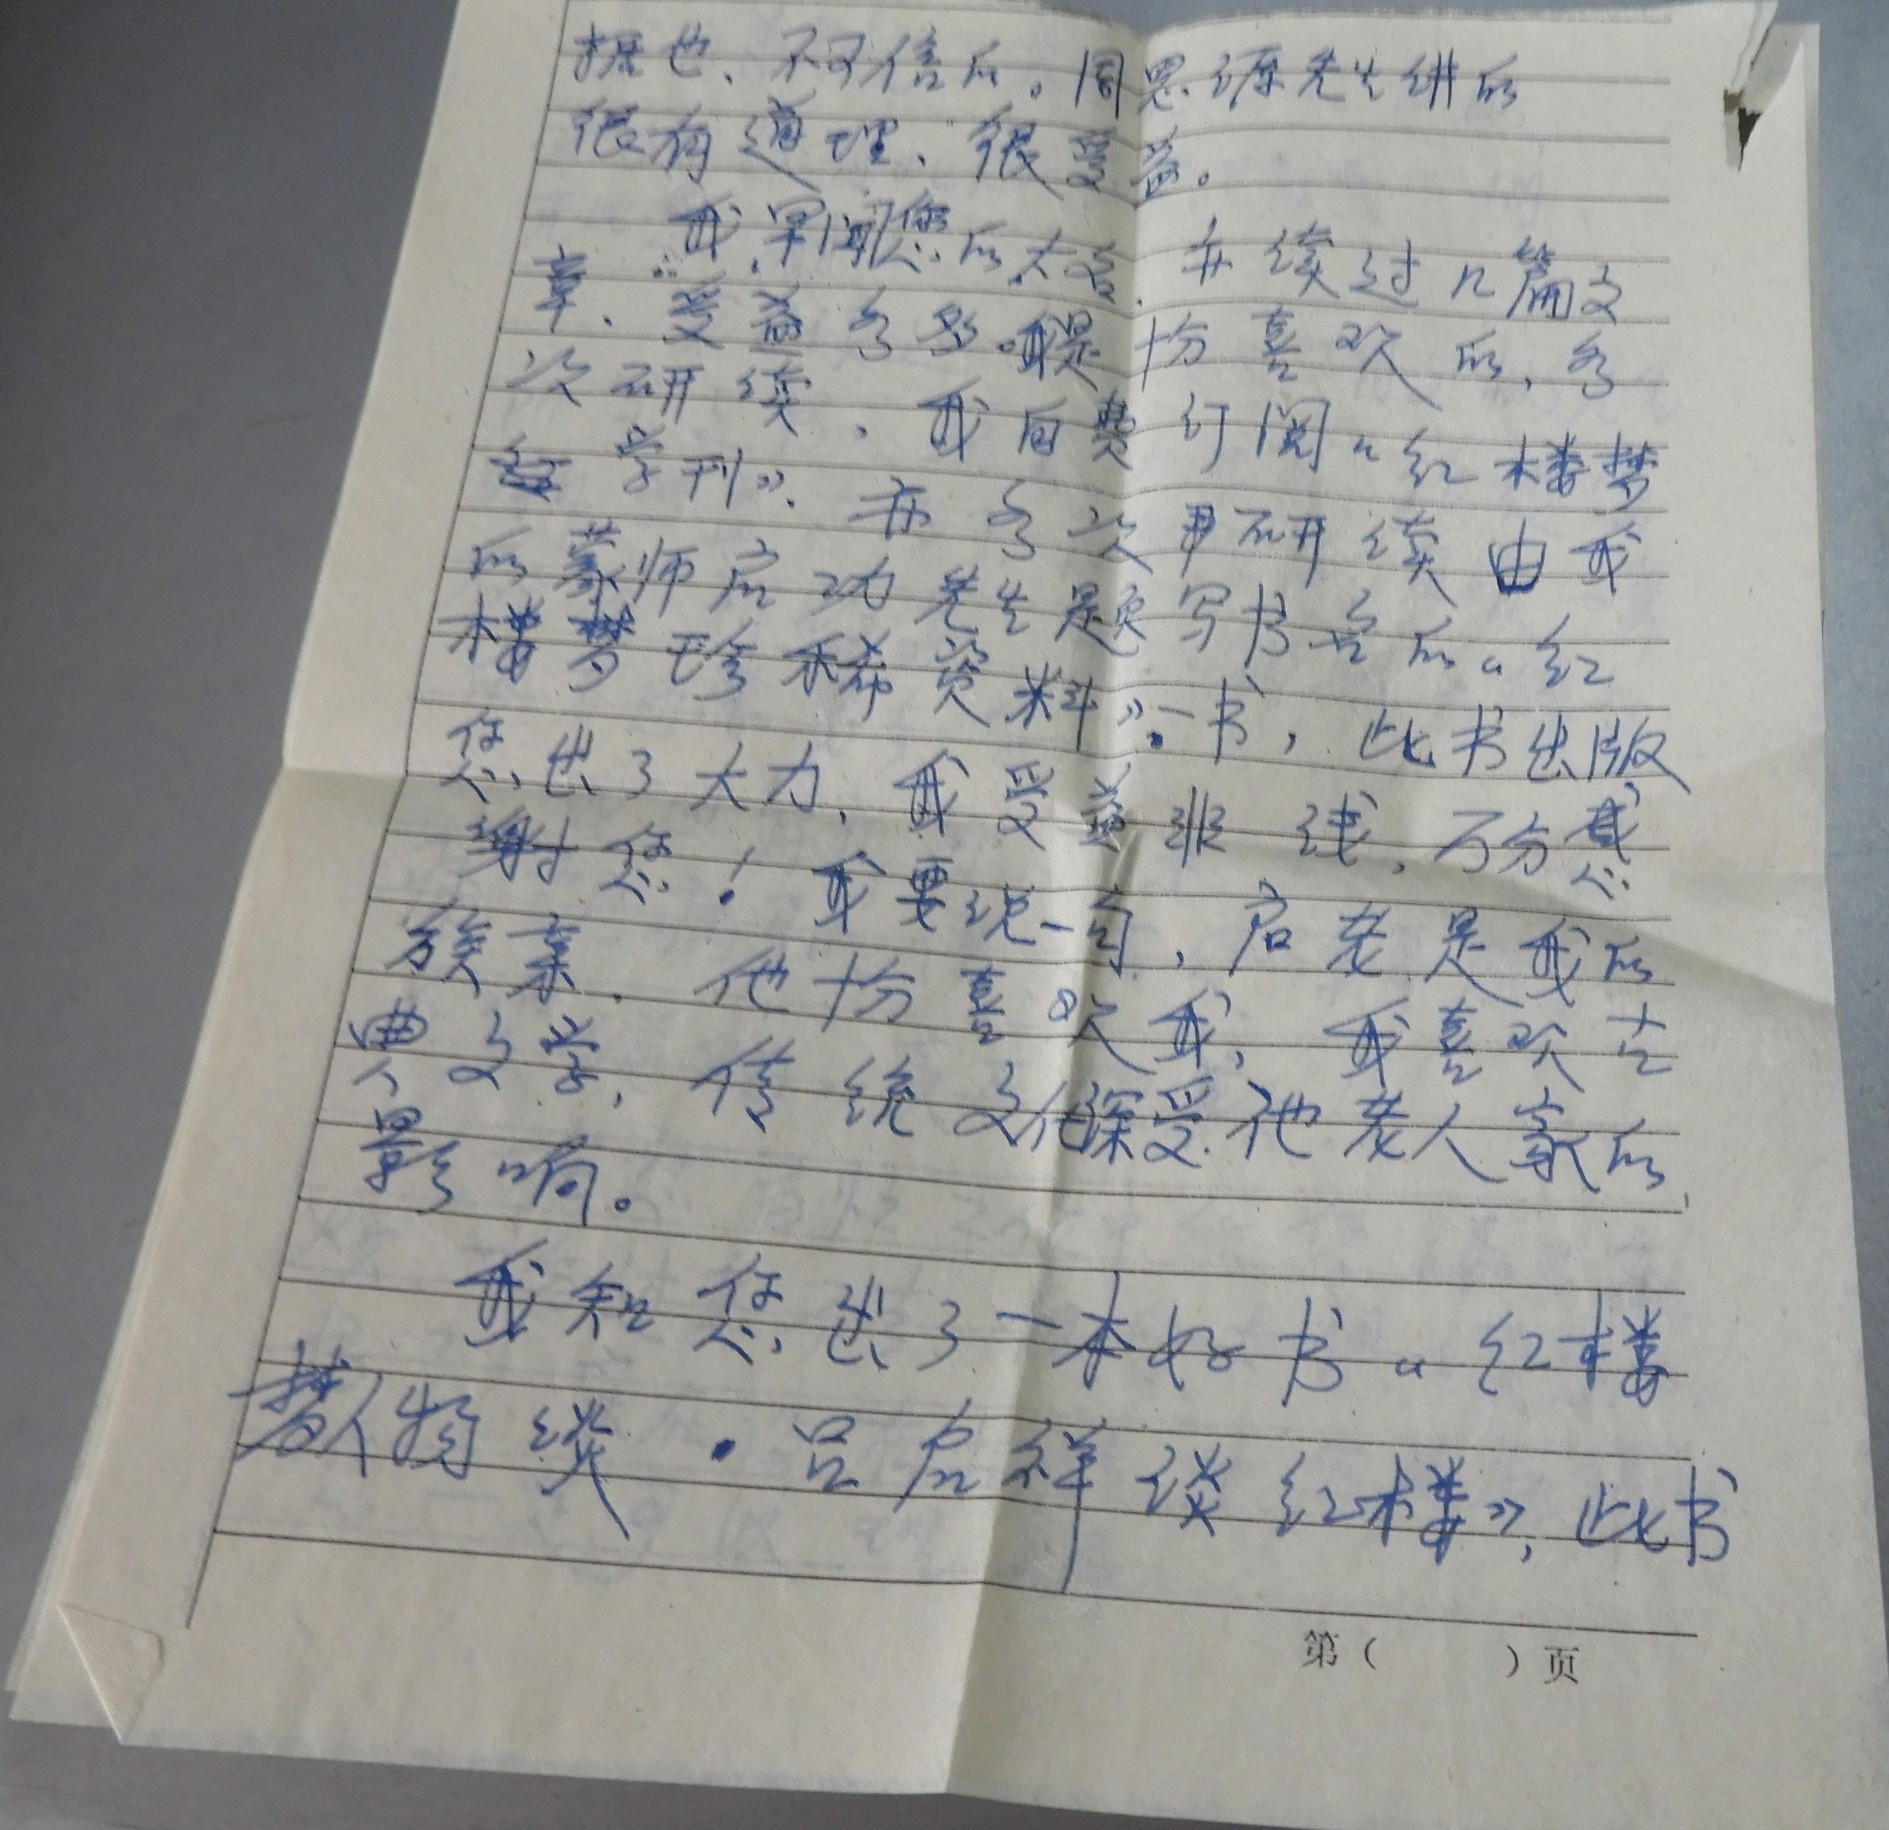 据也、不可信的。周思源先生讲的
很有道理、很受益。
我早闻您的大名、亦读过几篇文
章、受益多多。我是十分喜欢的、多
次研读，我自费订阅《红楼梦
学刊》、亦多次研读由我
的蒙师启功先生题写书名的《红
楼梦珍稀资料》一书，此书出版
您出了大力，我受益非浅，万分感
谢您！我要说一句，启老是我的
族亲、他十分喜欢我，我喜欢古
典文学，传统文化深受他老人家的
影响。
我知您出了一本好书《红楼
梦人物谈·吕启祥谈红楼》，此书
第（ ）页